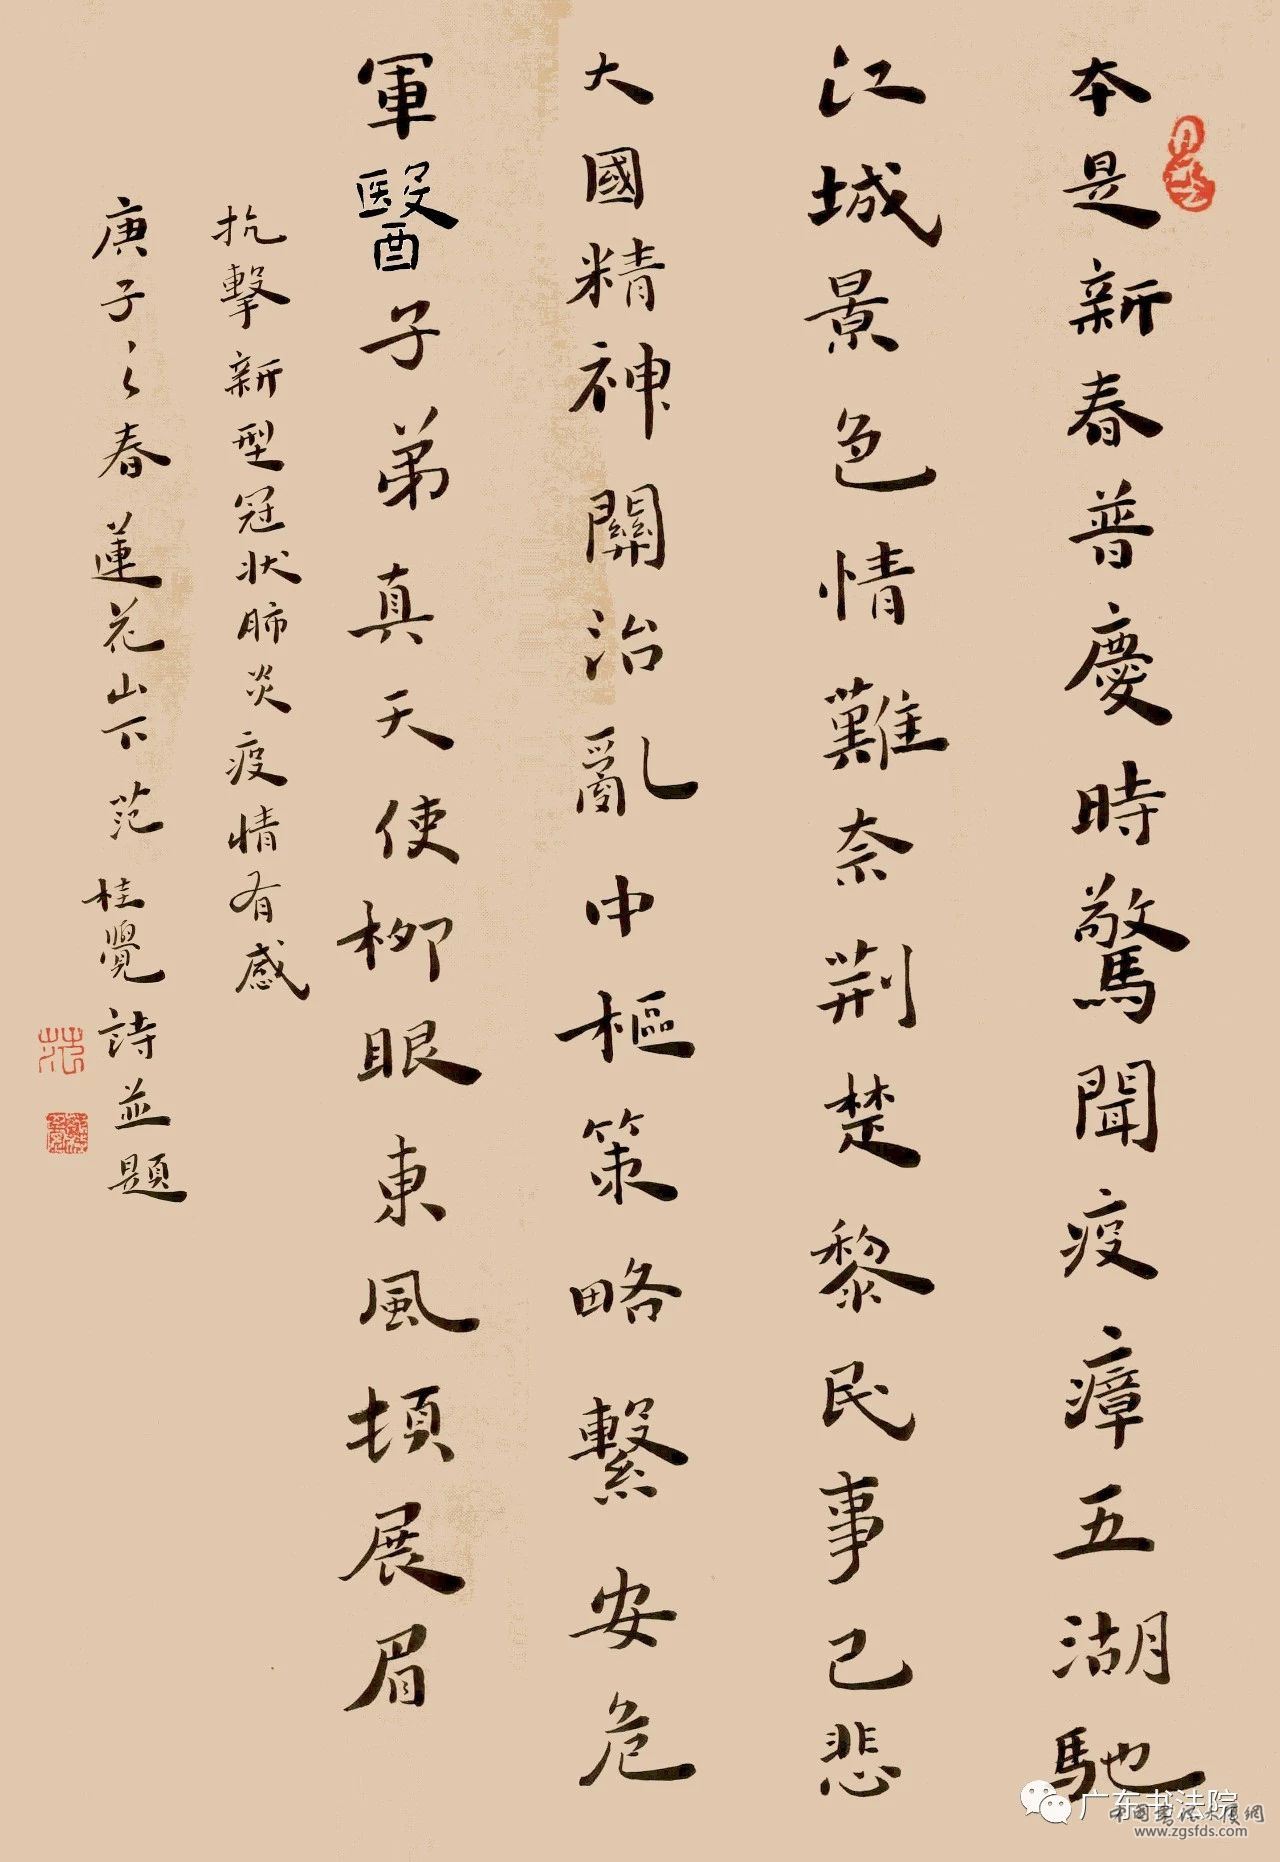 本是新春普慶時驚聞疫瘴五湖馳
江城景色情難奈荆楚黎民事已悲
大國精神關治亂中樞策略繫安危
軍醫子弟真天使柳眼東風頓展眉
抗擊新型冠状肺炎疫情有感
庚子之春蓮花山下范桂覺詩並題
范
广东书法院
中国书法大厦網
www.zgsfds.com